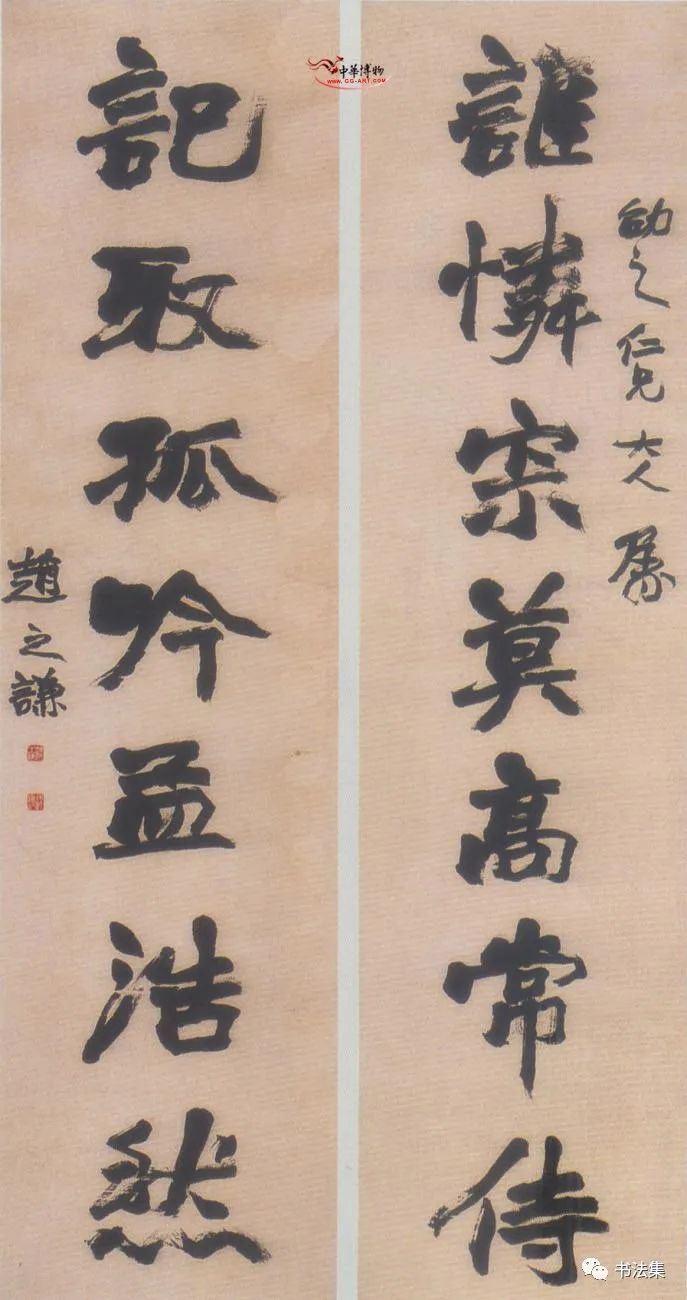 幼之仁兄大人属
誰憐宗莫高常侍
記取孤吟孟浩然
趙之謙
中華博物
WWW.GG-ART.COM
书法集